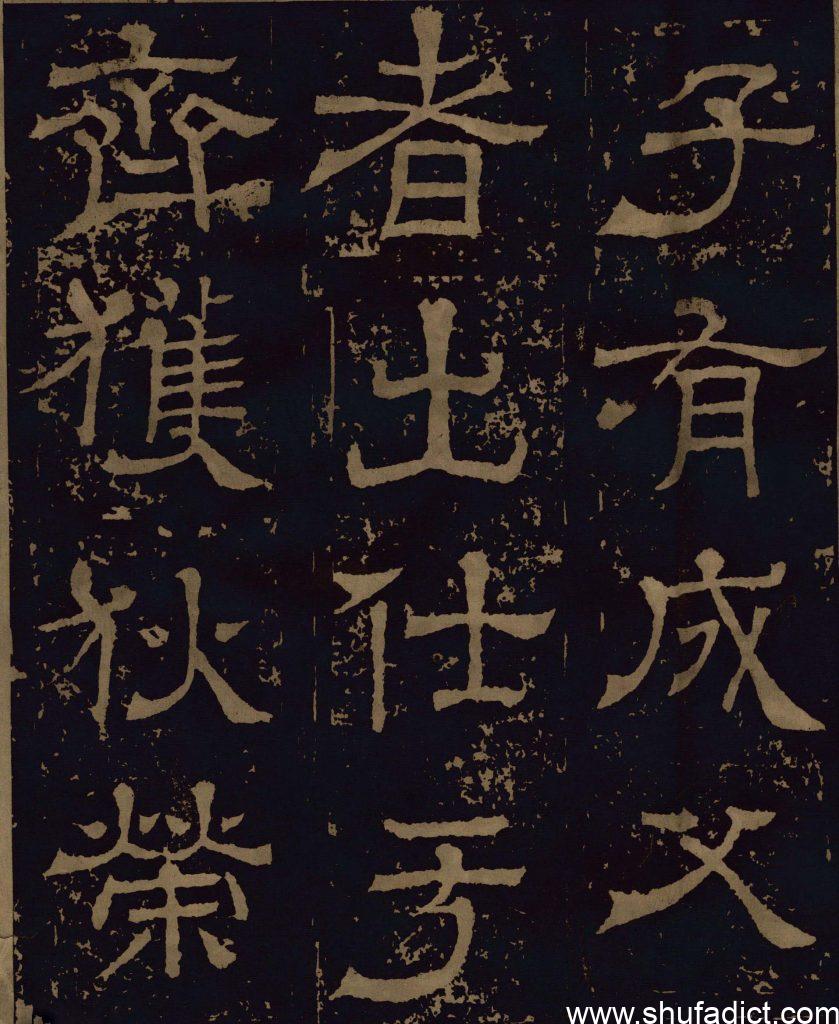 子有成父
者出仕于
齊獲狄榮
www.shufadict.com